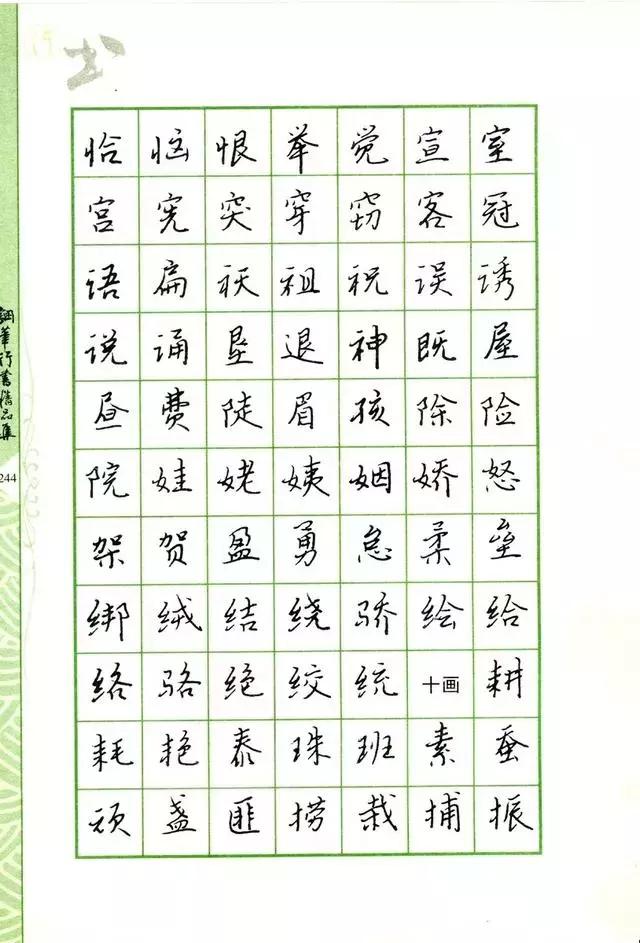 书
恰恼恨举觉宣室
宫宪突穿窃客冠
语扁袄祖祝误诱
说诵垦退神既屋
昼费陡眉孩除险
院娃姥姨姻娇怒
架贺盈勇怠柔垒
绑绒结绕骄绘给
络骆绝绞统十画耕
耗艳泰珠班素蚕
顽盏匪捞栽捕振
行书精品集
244